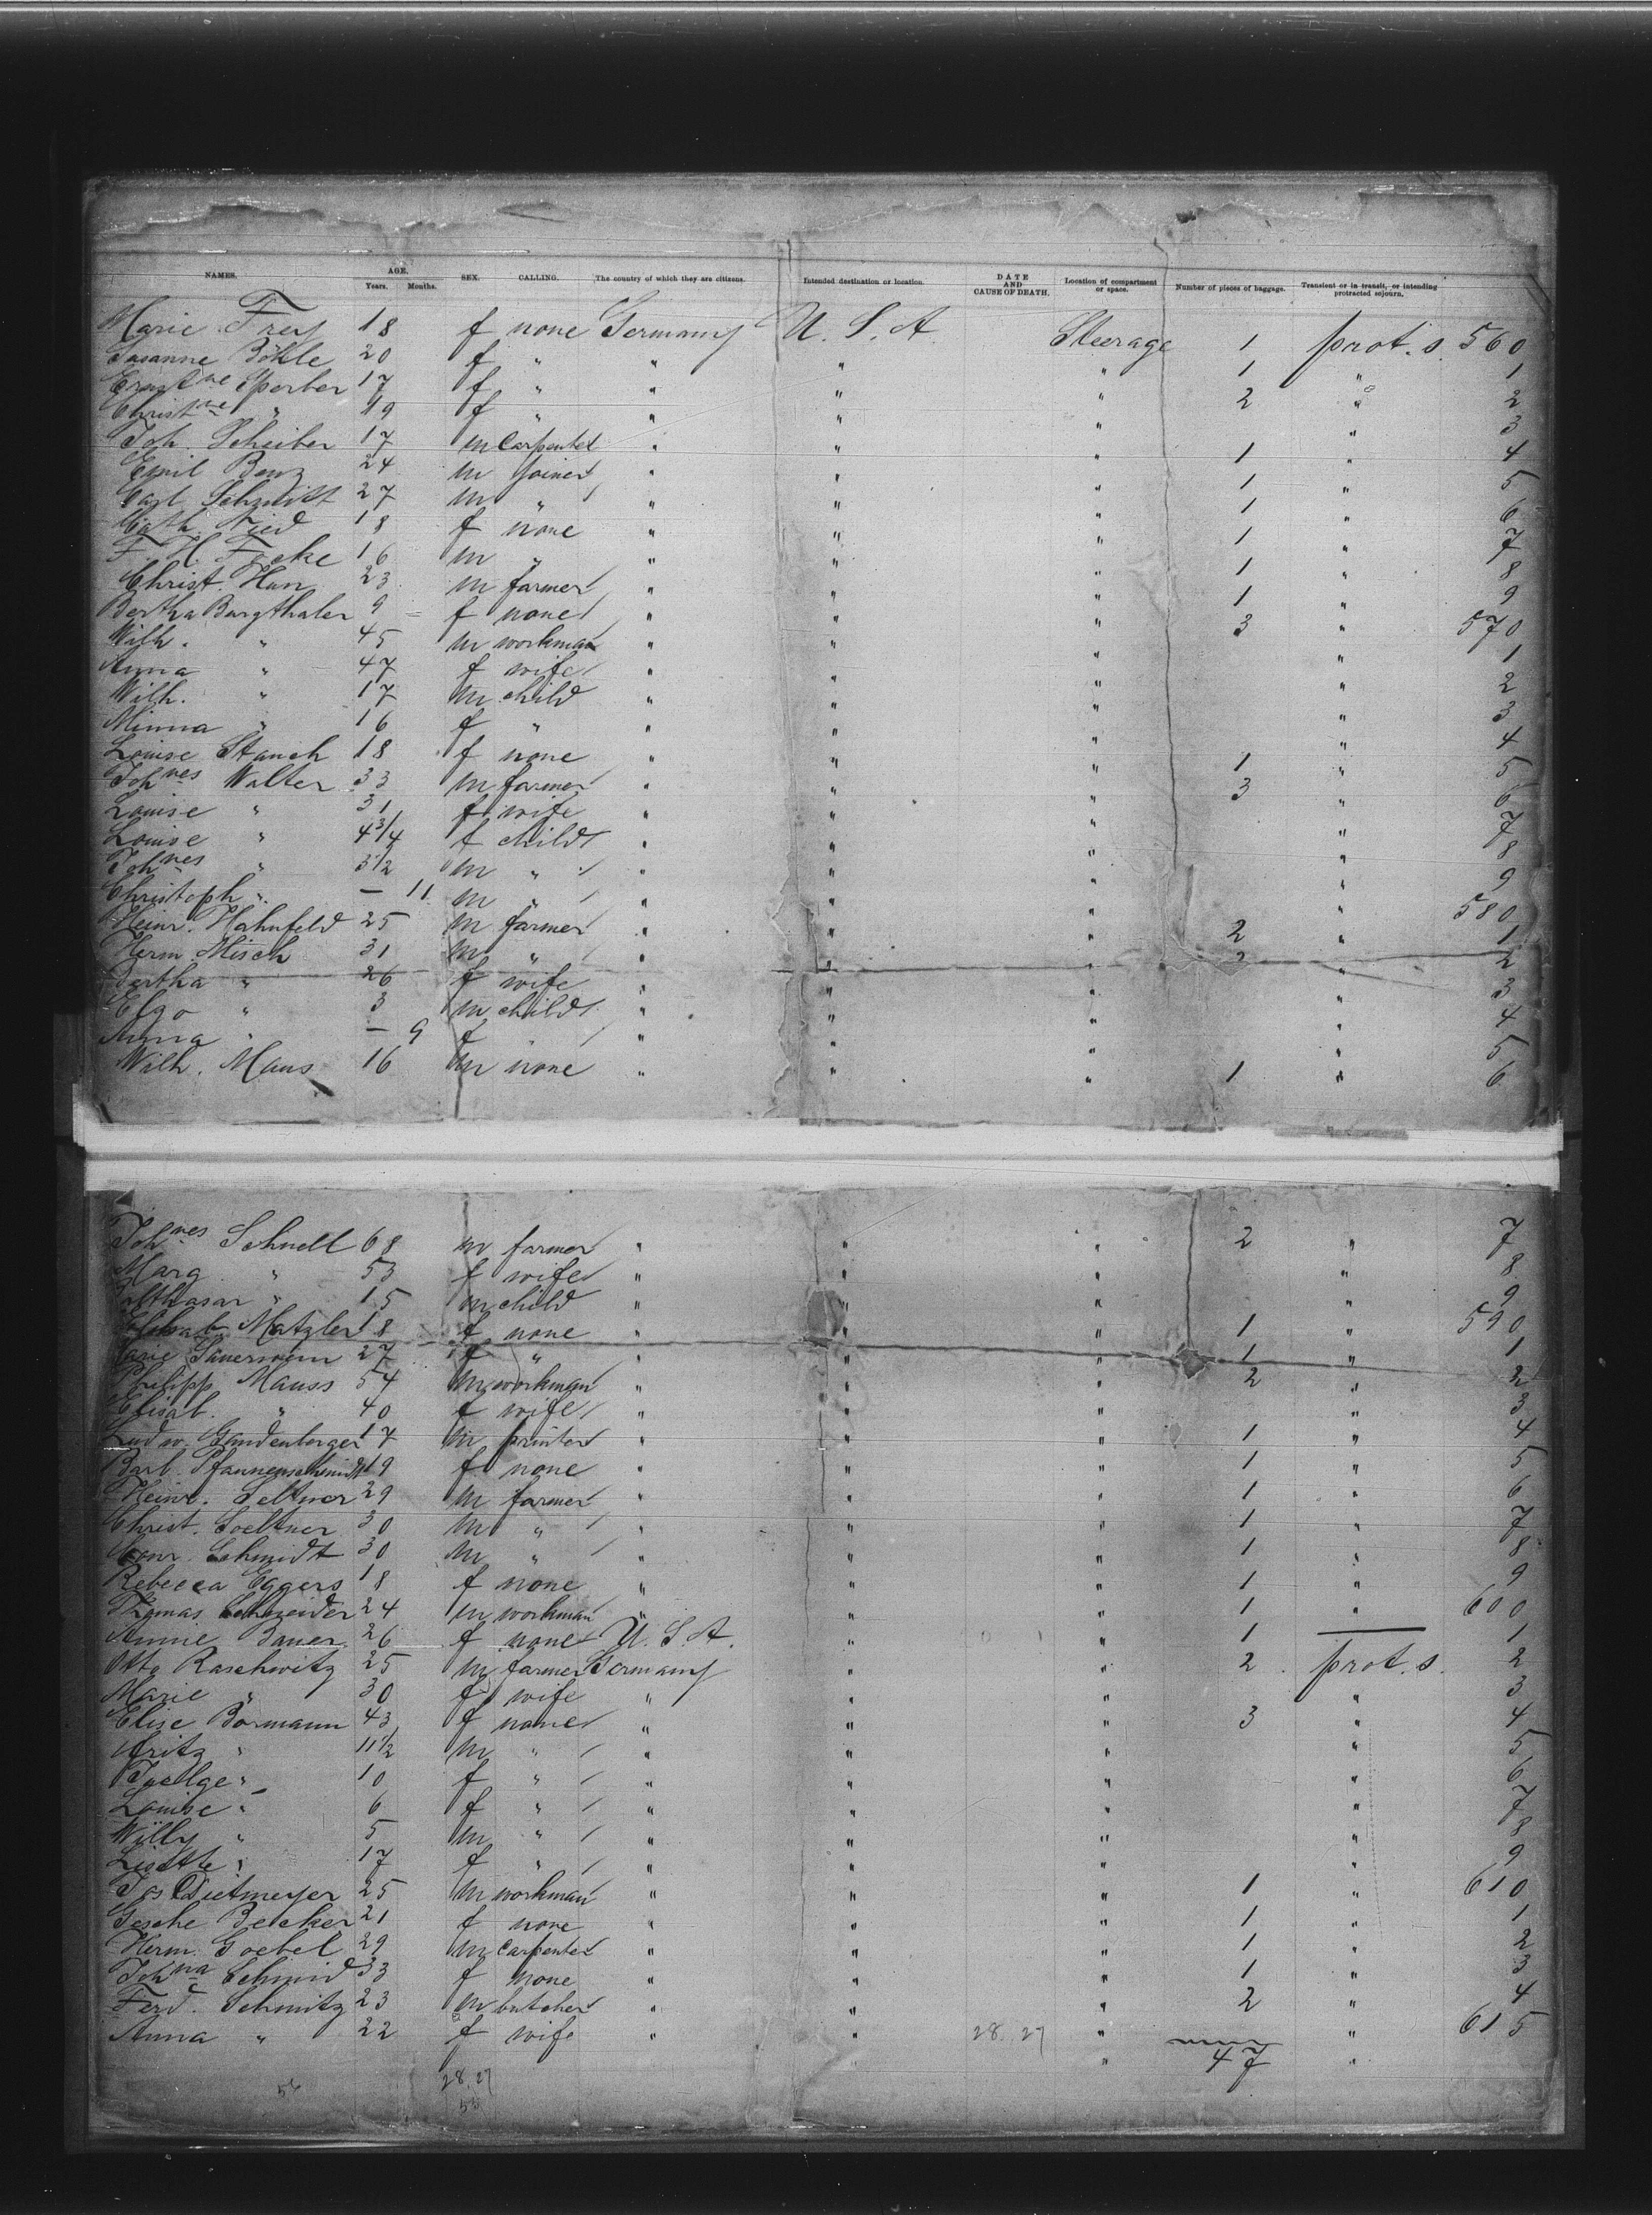 NAMES. AGE. Years. Months. SEX. CALLING. The country of which they are citizens. Intended destination or location. DATE AND CAUSE OF DEATH. Location of compartment or space. Number of pieces of baggage. Transient or in transit, or intending protracted sojourn.
Marie Frey 18 f none Germany U. S. A. Steerage 1 prot. s. 560
Susanne Böhle 20 f " " " " 1 " 1
Ernstne Sperber 17 f " " " " 2 " 2
Christne " 19 f " " " " " 3
Joh. Scheiber 17 m Carpenter " " " 1 " 4
Emil Benz 24 m joiner " " " 1 " 5
Carl Schmitt 27 m " " " " 1 " 6
Cath. Ried 18 f none " " " 1 " 7
F. H. Focke 16 m " " " " 1 " 8
Christ. Han 23 m farmer " " " 1 " 9
Bertha Burgthaler 9 f none " " " 3 " 570
Wilh. " 45 m workman " " " " 1
Anna " 47 f wife " " " " 2
Wilh. " 17 m child " " " " 3
Minna " 16 f " " " " " 4
Louise Stauch 18 f none " " " 1 " 5
Johnes Walter 33 m farmer " " " 3 " 6
Louise " 31 f wife " " " " 7
Louise " 4 3/4 f child " " " " 8
Johnes " 3 1/2 m " " " " " 9
Christoph " — 11 m " " " " " 580
Heinr. Hahnfeld 25 m farmer " " " 2 " 1
Herm. Misch 31 m " " " " 2 " 2
Bertha " 26 f wife " " " " 3
Elgo " 3 m child " " " " 4
Anna " — 9 f " " " " 5
Wilh. Maus 16 m none " " " 1 " 6
Johnes Schnell 68 m farmer " " " 2 " 7
Marg. " 53 f wife " " " " 8
Balthasar " 15 m child " " " " 9
Matzler 18 f none " " " 1 " 590
Marie Sauerwein 27 f " " " " 1 " 1
Philipp Mauss 54 m workman " " " 2 " 2
Elisab. " 40 f wife " " " " 3
Ludw. Gandenberger 17 m printer " " " 1 " 4
Barb. Pfannenschmidt 19 f none " " " 1 " 5
Heinr. Seltner 29 m farmer " " " 1 " 6
Christ. Soeltner 30 m " " " " 1 " 7
Conr. Schmidt 30 m " " " " 1 " 8
Rebecca Eggers 18 f none " " " 1 " 9
Thomas Schneider 24 m workman " " " 1 " 600
Annie Bauer 26 f none U. S. A. " " 1 — 1
Otto Raschwitz 25 m farmer Germany " " 2 prot. s. 2
Marie " 30 f wife " " " " 3
Elise Bormann 43 f none " " " 3 " 4
Fritz " 11 1/2 m " " " " " 5
" 10 f " " " " " 6
Louise " 6 f " " " " " 7
Willy " 5 m " " " " " 8
Lisette " 17 f " " " " " 9
Jos Dietmeyer 25 m workman " " " 1 " 610
Gesche Becker 21 f none " " " 1 " 1
Herm. Goebel 29 m Carpenter " " " 1 " 2
Johna Schmid 33 f none " " " 1 " 3
Ferd. Schmitz 23 m butcher " " " 2 " 4
Anna " 22 f wife " " 28.27 " " 615
28.27 " " 47 "
56